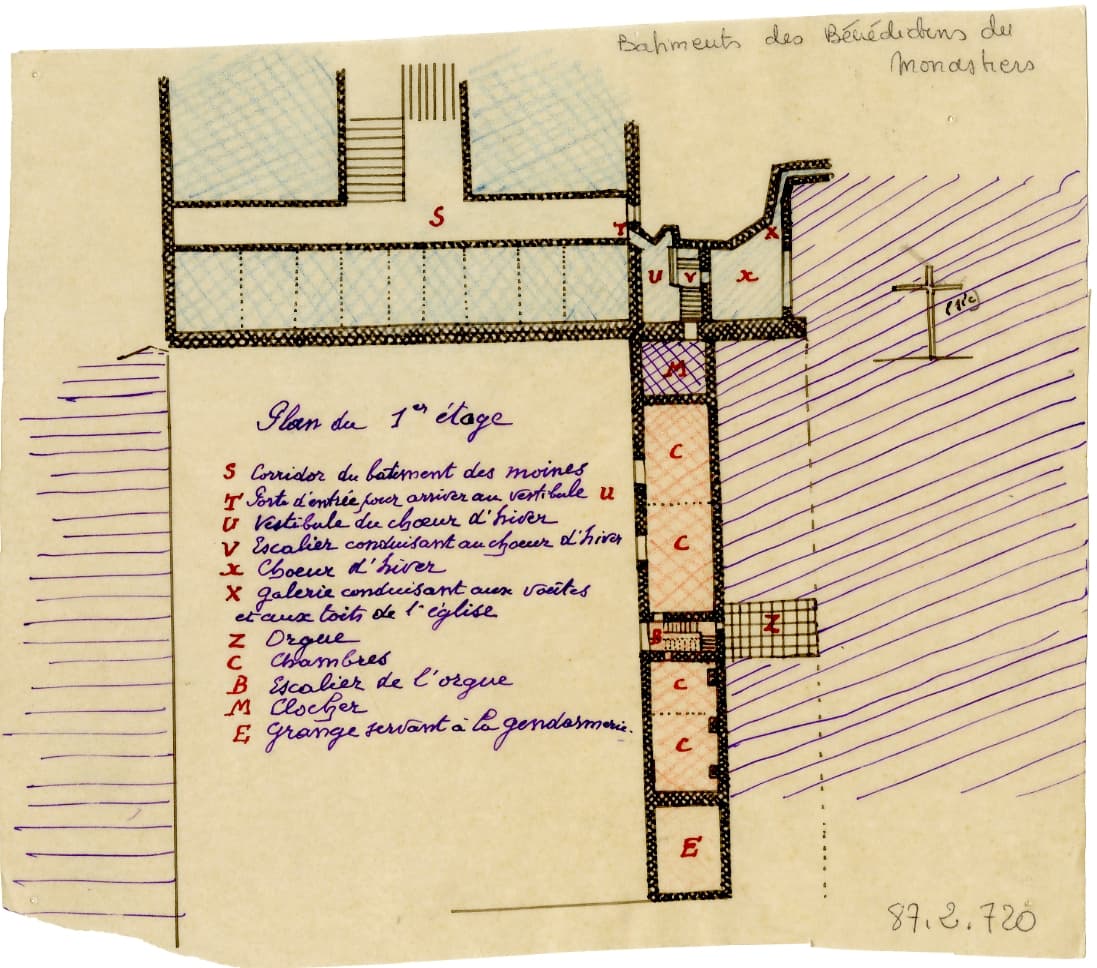 Batiments des Bénédictins du
Monastiers
S
T
U
V
x
X
M
C
C
B
Z
C
C
E
Plan du 1er étage
S Corridor du batiment des moines
T Porte d'entrée pour arriver au vestibule U
U Vestibule du chœur d'hiver
V Escalier conduisant au chœur d'hiver
x Choeur d'hiver
X galerie conduisant aux voûtes
et aux toits de l'église
Z Orgue
C Chambres
B Escalier de l'orgue
M Clocher
E Grange servant à la gendarmerie.
87.2.720